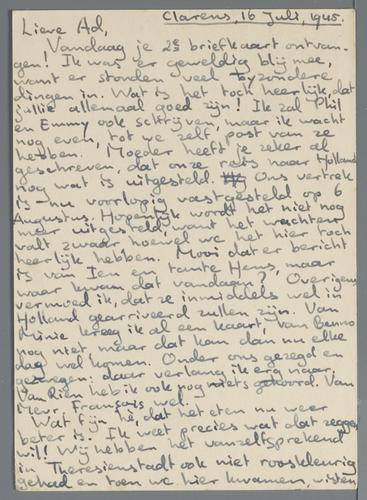 Clarens, 16 Juli, 1945.
Lieve Ad,
Vandaag je 2e briefkaart ontvan-
gen! Ik was er geweldig blij mee,
want er stonden veel byzondere
dingen in. Wat is het toch heerlijk, dat
jullie allemaal goed zijn! Ik zal Phil
en Emmy ook schrijven, maar ik wacht
nog even, tot we zelf post van ze
hebben. Moeder heeft je zeker al
geschreven, dat onze reis naar Holland
nog wat is uitgesteld. Ons vertrek
is nu voorlopig vastgesteld op 6
Augustus. Hopenlijk wordt het niet nog
meer uitgesteld, want het wachten
valt zwaar, hoewel we het hier toch
heerlijk hebben. Mooi dat er bericht
is van Ien en tante Hens, maar
waar kwam dat vandaan? Overigens
vermoed ik, dat ze inmiddels wel in
Holland gearriveerd zullen zijn. Van
Minie kreeg ik al een kaart, van Benno
nog niet, maar dat kan dan nu elke
dag wel komen. Onder ons gezegd en
gezwegen: daar verlang ik erg naar.
Van Rien heb ik ook nog niets gehoord. Van
Mevr. François wel.
Wat fijn, dat het eten nu weer
beter is. Ik weet precies wat dat zeggen
wil! Wij hebben het vanzelfsprekend
in Theresienstadt ook niet rooskleurig
gehad en toen we hier kwamen, wisten